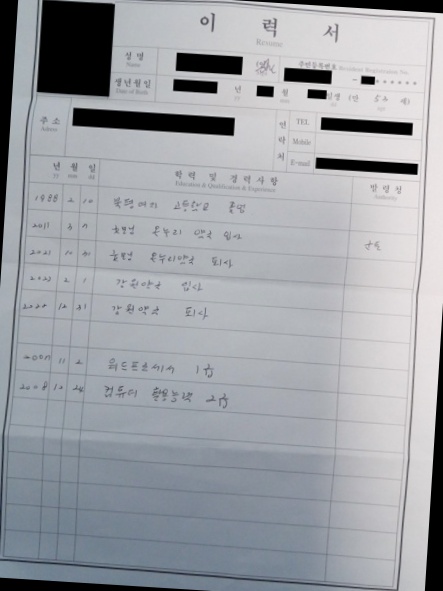 이 력 서
Resume
성 명
Name
주민등록번호 Resident Registration No.
생년월일
Date of Birth
년
월
일생 (만 54 세)
yy mm dd age
주 소
Address
연 락 처
TEL
Mobile
E-mail
년 월 일
yy mm dd
학 력 및 경 력 사 항
Education & Qualification & Experience
발 령 청
Authority
1988 2 10 북평여자 고등학교 졸업
2011 3 온누리 약국 입사
2021 10 31 온누리약국 퇴사
2023 2 1 강원약국 입사
12 31 강원약국 퇴사
2007 11 2 워드프로세서 1급
2008 12 24 컴퓨터 활용능력 2급